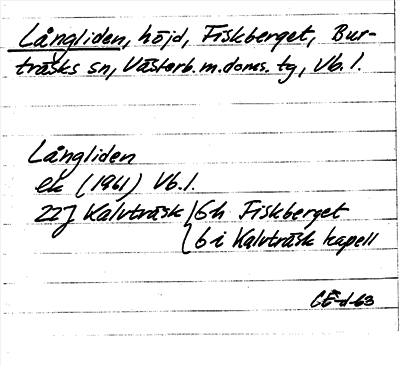 Långliden, höjd, Fiskberget, Bur-
träsks sn, Västerb. m. doms. tg, Vb. l.
Långliden
ek (1961) Vb. l.
22J Kalvträsk 6h Fiskberget
6i Kalvträsk kapell
CE-d-63